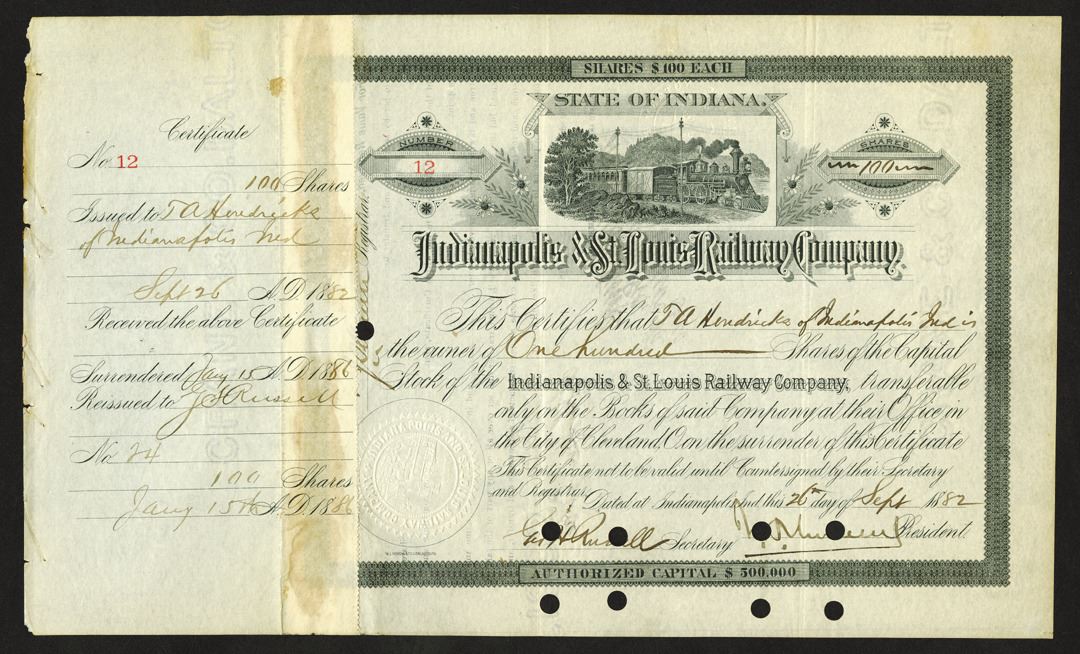 Certificate
No. 12
100 Shares
Issued to T A Hendricks
of Indianapolis Ind
Sept 26 A.D. 1882
Received the above Certificate
Surrendered Jany 15 A.D. 1886
Reissued to J F Russell
No 24
100 Shares
Jany 15th A.D. 1886
SHARES $100 EACH
STATE OF INDIANA.
NUMBER
12
SHARES
100
Indianapolis & St. Louis Railway Company.
This Certifies that T A Hendricks of Indianapolis Ind is
the owner of One hundred Shares of the Capital
Stock of the Indianapolis & St. Louis Railway Company, transferable
only on the Books of said Company at their Office in
the City of Cleveland, O. on the surrender of this Certificate
This Certificate not to be valid until Countersigned by their Secretary
and Registrar.
Dated at Indianapolis Ind this 26th day of Sept 1882
Geo H Russell Secretary
President.
AUTHORIZED CAPITAL $ 500,000
Registrar.